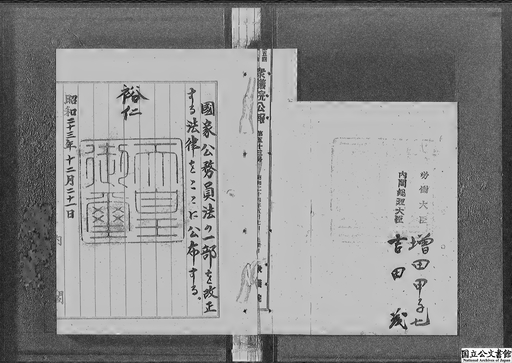 国家公務員法の一部を改正
する法律をここに公布する。
裕仁
天皇
御璽
昭和二十三年十二月二十一日
内閣
衆議院公報
労働大臣 増田甲子七
内閣総理大臣 吉田茂
国立公文書館
National Archives of Japan